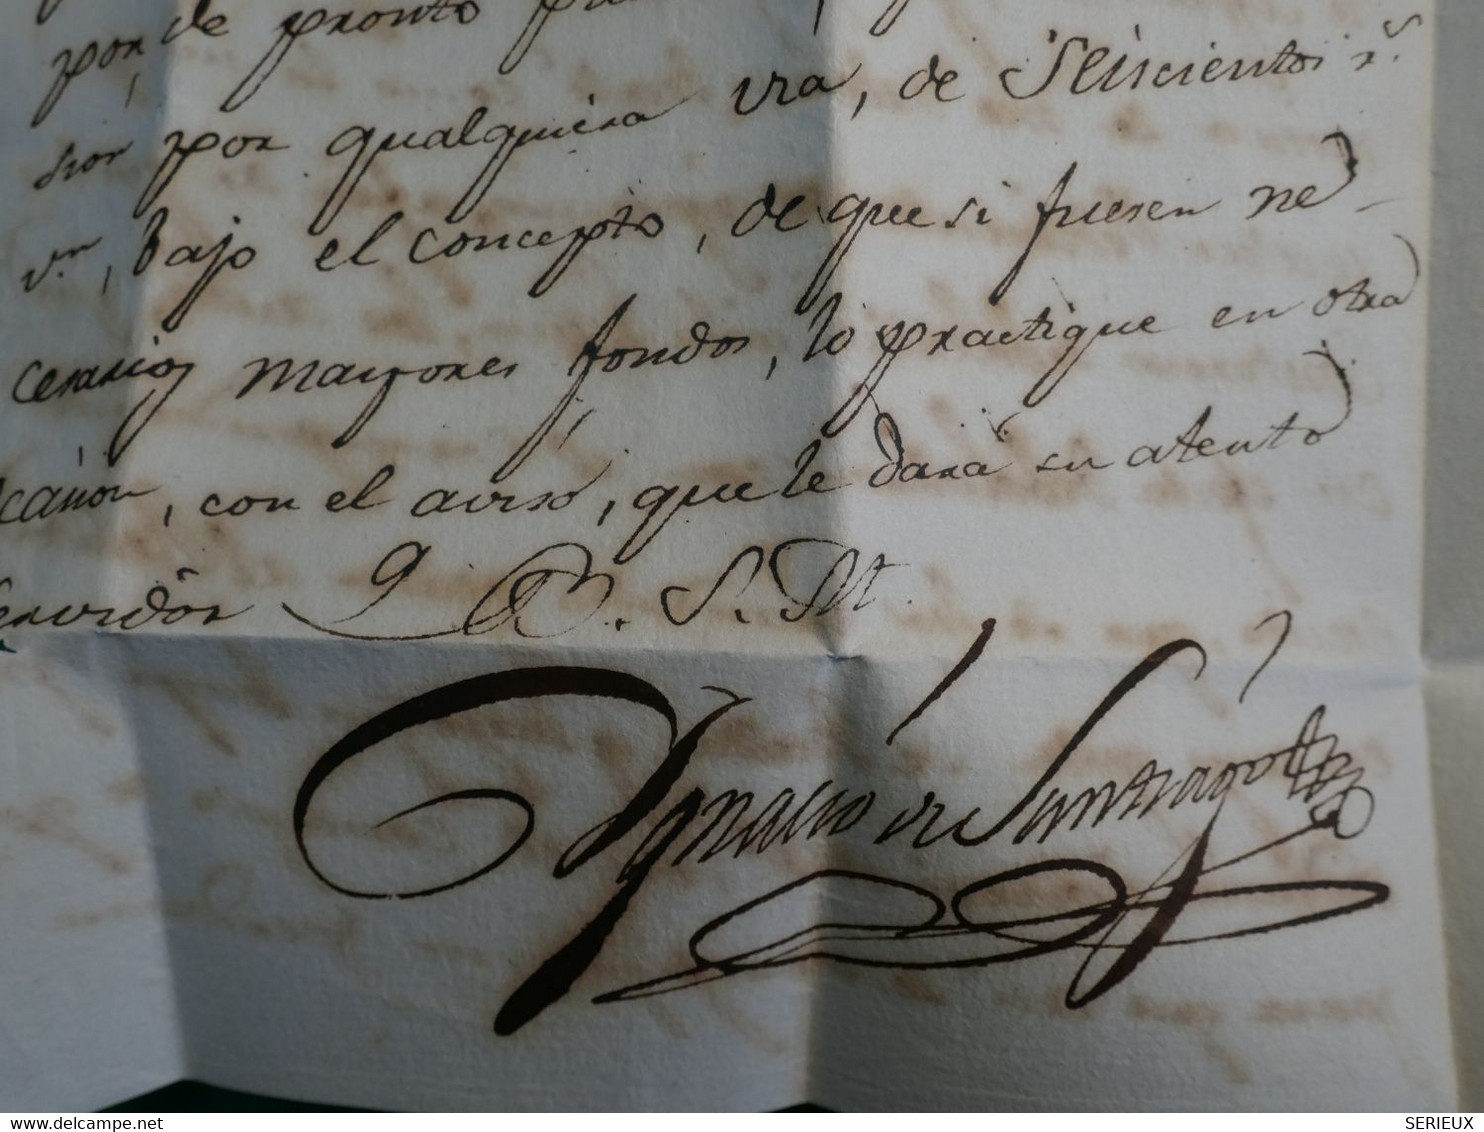 por de pronto
por qualquiera via, de Seiscientos r.s
v.n, bajo el concepto, de que si fuesen ne-
cesarios mayores fondos, lo practique en otra
con el aviso, que le dará su atento
Servidor Q. B. S. M.
Ygnacio de Santiago
SERIEUX